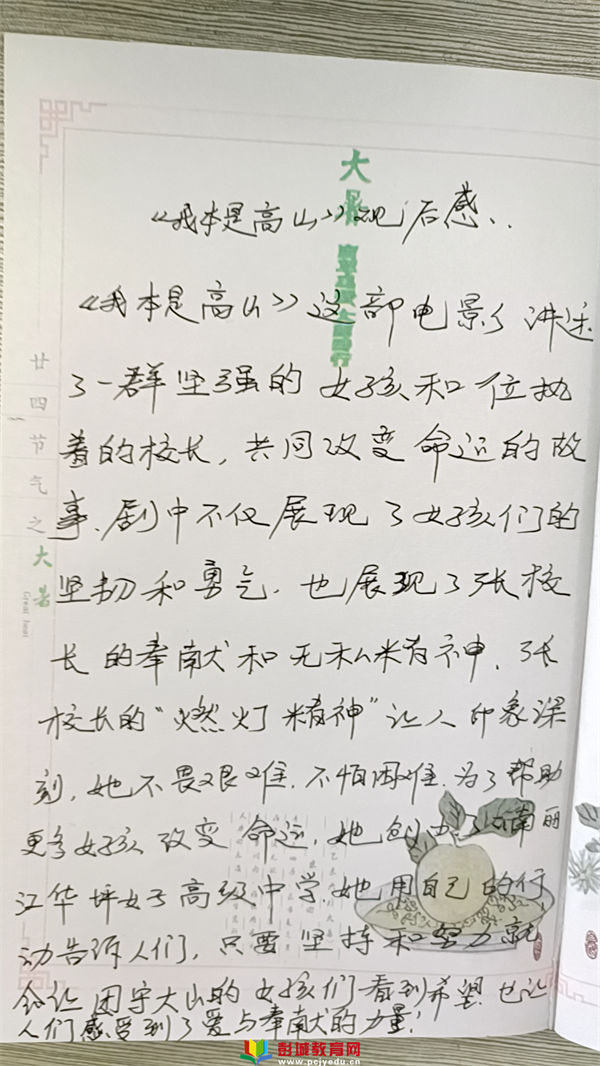 大暑
《我本是高山》观后感..
《我本是高山》这部电影讲述
了一群坚强的女孩和一位执
着的校长,共同改变命运的故
事.剧中不仅展现了女孩们的
坚韧和勇气.也展现了张校
长的奉献和无私精神.张
校长的“燃灯精神”让人印象深
刻,她不畏艰难.不怕困难.为了帮助
更多女孩改变命运.她创办了云南丽
江华坪女子高级中学.她用自己的行
动告诉人们,只要坚持和努力就
会让困守大山的女孩们看到希望.也让
人们感受到了爱与奉献的力量!
廿四节气之大暑
Great heat
彭城教育网
www.pcjyedu.cn